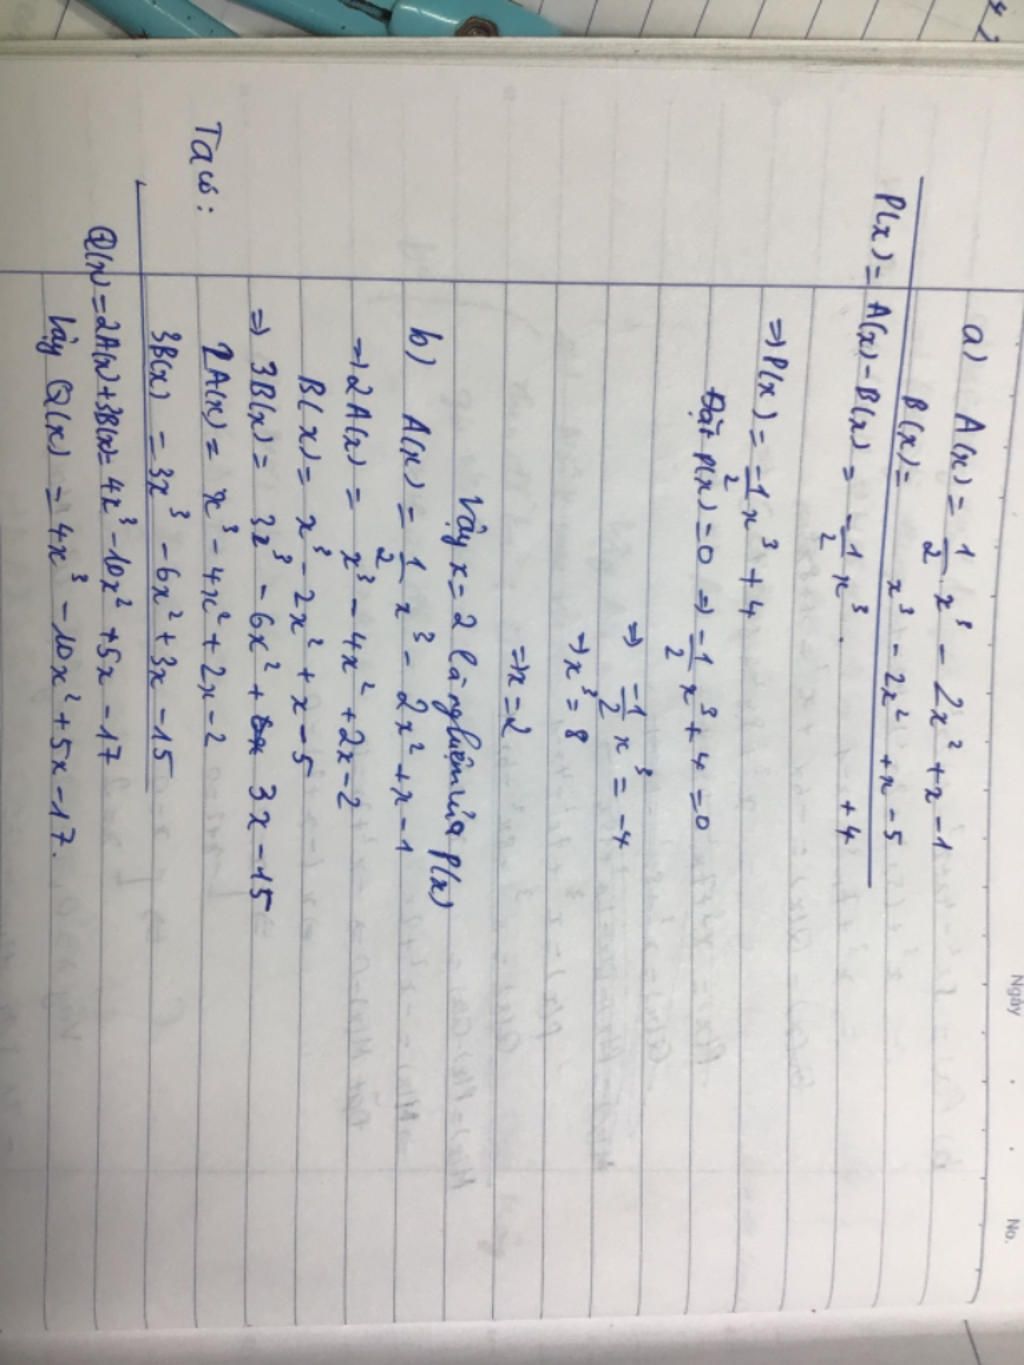 Ngày . . No.
a) A(x) = 1/2 x³ - 2x² + x - 1
B(x) = x³ - 2x² + x - 5
P(x) = A(x) - B(x) = -1/2 x³ . + 4
⇒ P(x) = -1/2 x³ + 4
Đặt P(x) = 0 ⇒ -1/2 x³ + 4 = 0
⇒ -1/2 x³ = -4
⇒ x³ = 8
⇒ x = 2
Vậy x = 2 là nghiệm của P(x)
b) A(x) = 1/2 x³ - 2x² + x - 1
⇒ 2A(x) = x³ - 4x² + 2x - 2
B(x) = x³ - 2x² + x - 5
⇒ 3B(x) = 3x³ - 6x² + 3x - 15
Ta có: 2A(x) = x³ - 4x² + 2x - 2
3B(x) = 3x³ - 6x² + 3x - 15
Q(x) = 2A(x) + 3B(x) = 4x³ - 10x² + 5x - 17
Vậy Q(x) = 4x³ - 10x² + 5x - 17.